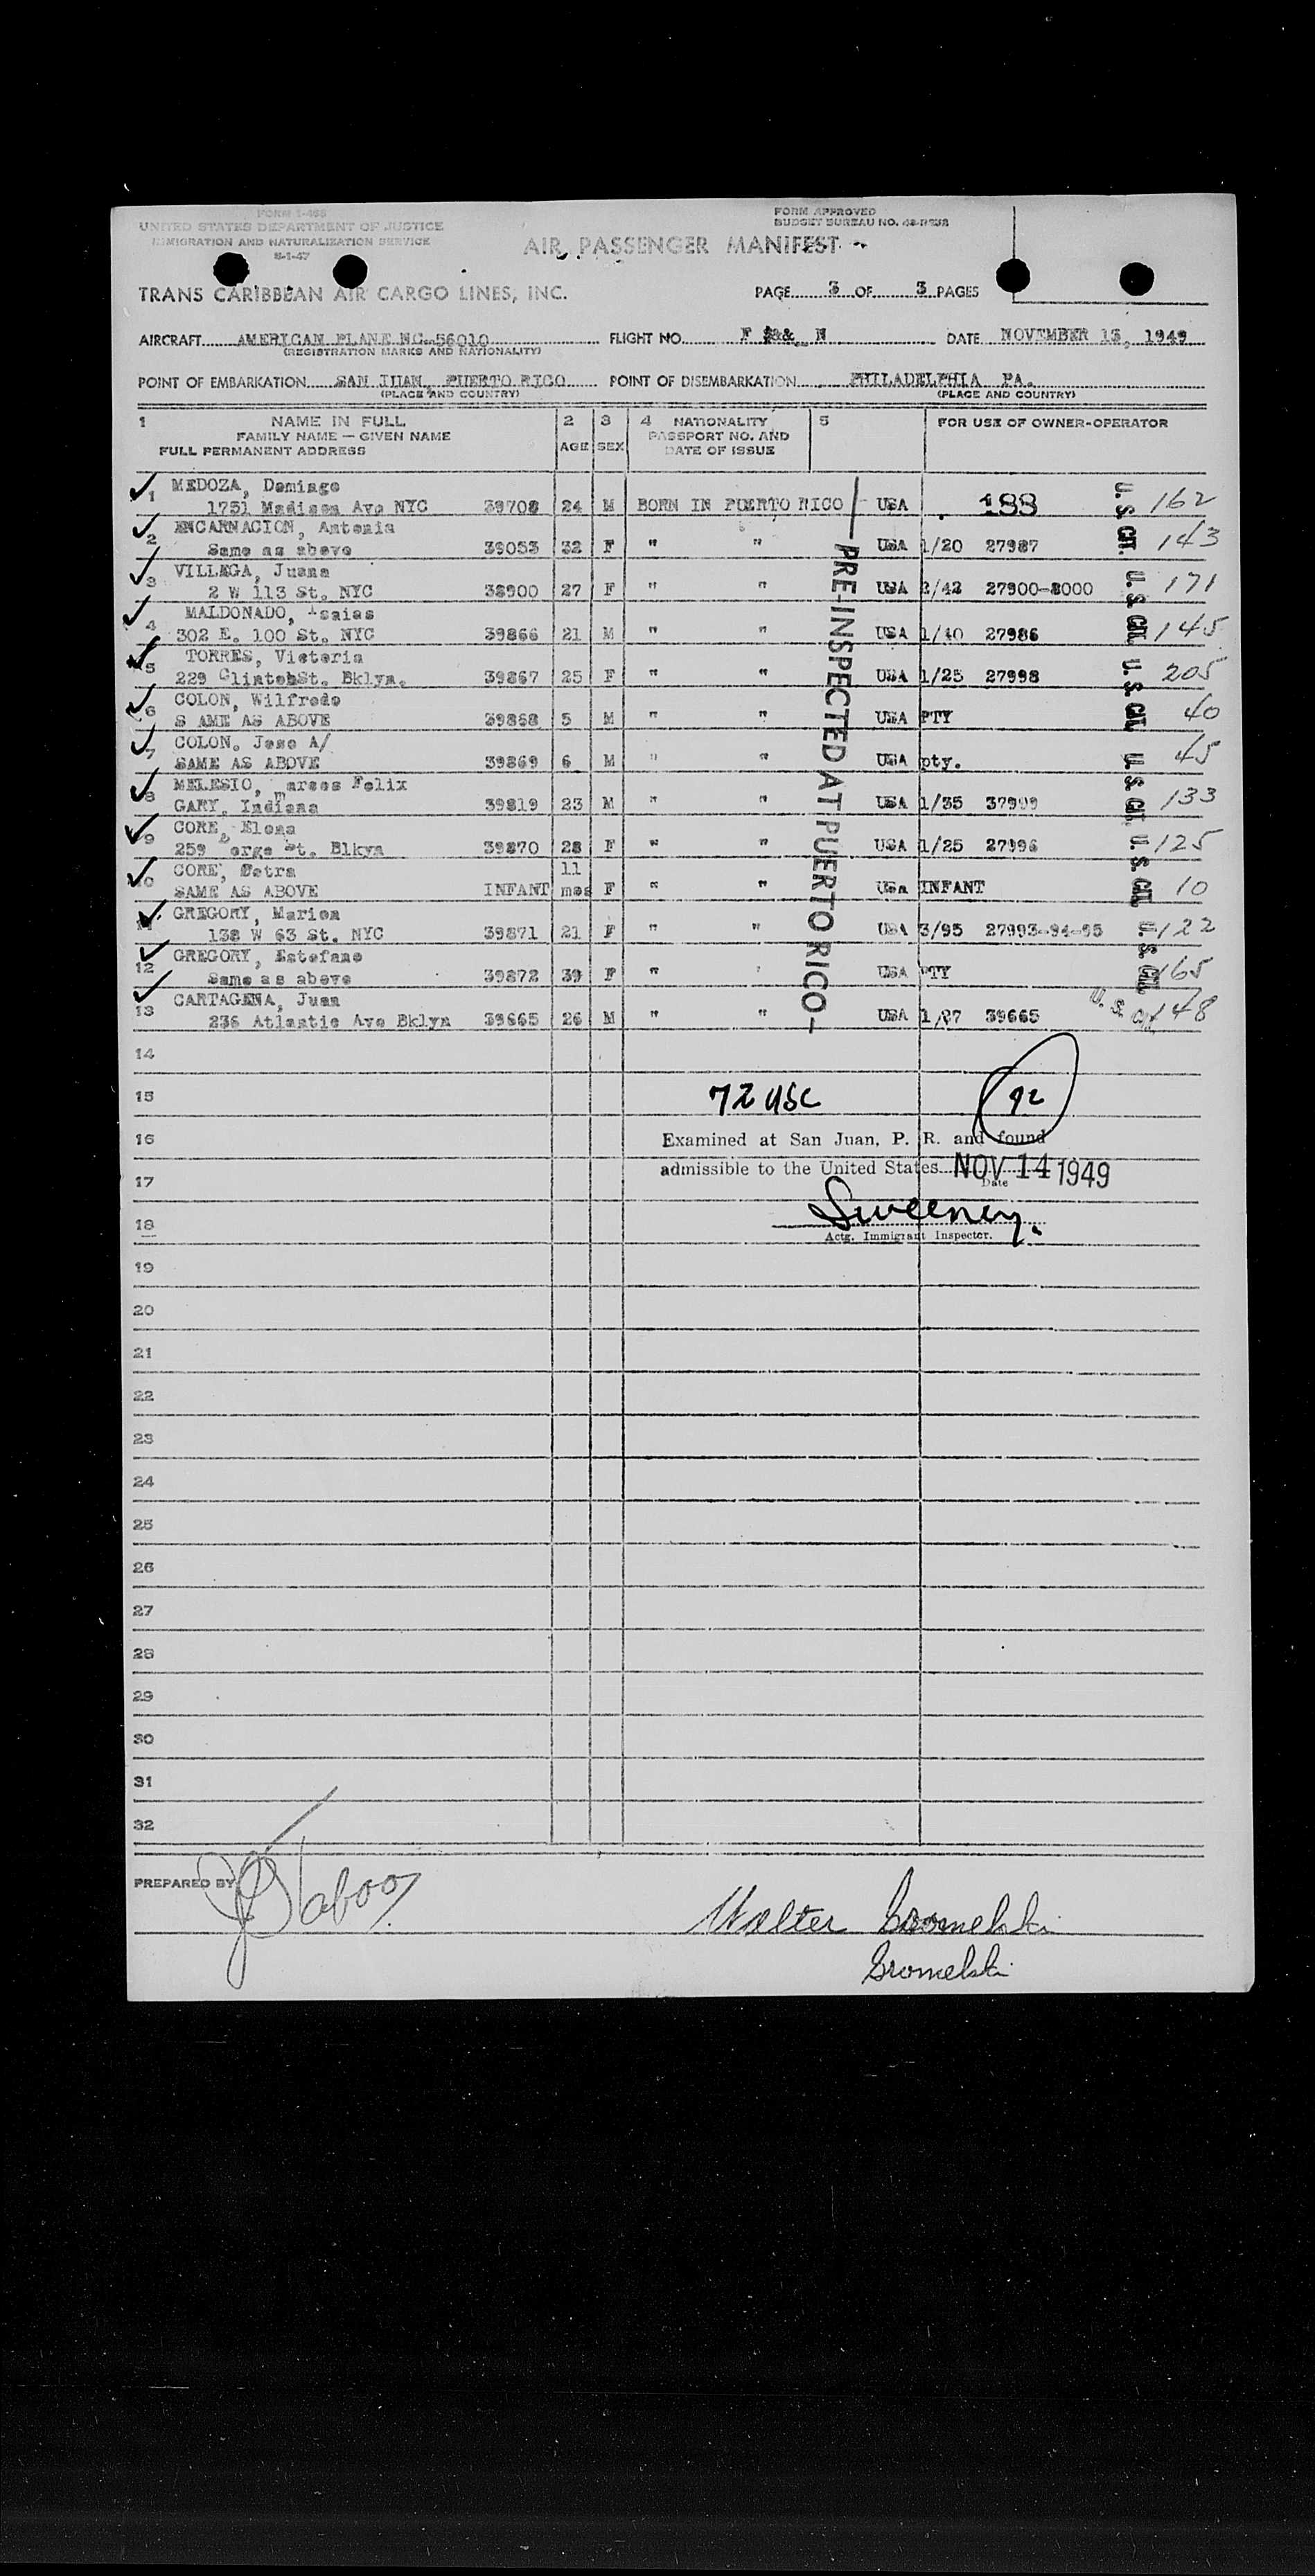 FORM I-466
UNITED STATES DEPARTMENT OF JUSTICE
IMMIGRATION AND NATURALIZATION SERVICE
8-1-47
FORM APPROVED
BUDGET BUREAU NO.
AIR PASSENGER MANIFEST
TRANS CARIBBEAN AIR CARGO LINES, INC.
PAGE 3 OF 3 PAGES
AIRCRAFT AMERICAN PLANE NC-56010 FLIGHT NO. F N DATE NOVEMBER 13, 1949
(REGISTRATION MARKS AND NATIONALITY)
POINT OF EMBARKATION SAN JUAN, PUERTO RICO POINT OF DISEMBARKATION PHILADELPHIA PA.
(PLACE AND COUNTRY) (PLACE AND COUNTRY)
1 NAME IN FULL 2 3 4 NATIONALITY 5 FOR USE OF OWNER-OPERATOR
FAMILY NAME — GIVEN NAME AGE SEX PASSPORT NO. AND
FULL PERMANENT ADDRESS DATE OF ISSUE
1 MEDOZA, Domingo
1751 Madison Ave NYC 39708 24 M BORN IN PUERTO RICO USA 188 U.S. CIT. 162
2 ENCARNACION, Antonia
Same as above 39053 32 F " " USA 1/20 27987 143
3 VILLEGA, Juana
2 W 113 St. NYC 38900 27 F " " USA 2/42 27900-8000 U.S. CIT. 171
4 MALDONADO, Isaias
302 E. 100 St. NYC 39866 21 M " " USA 1/40 27986 145
5 TORRES, Victoria
229 ClintohSt. Bklyn. 39867 25 F " " USA 1/25 27998 U.S. CIT. 205
6 COLON, Wilfredo
S AME AS ABOVE 39868 5 M " " USA PTY 40
7 COLON. Jose A/
SAME AS ABOVE 39869 6 M " " USA pty. U.S. CIT. 45
8 MELESIO, marcos Felix
GARY, Indiana 39819 23 M " " USA 1/35 133
9 CORE, Elena
259 St. Blkyn 39870 28 F " " USA 1/25 27996 U.S. CIT. 125
10 CORE, Petra 11
SAME AS ABOVE INFANT mos F " " USa INFANT 10
11 GREGORY, Marion
138 W 63 St. NYC 39871 21 F " " USA 3/95 27993-94-95 U.S. CIT. 122
12 GREGORY, Estefano
Same as above 39872 39 F " USA PTY 165
13 CARTAGENA, Juan
236 Atlantic Ave Bklyn 39665 26 M " " USA 1/27 39665 U.S. Cit. 148
—PRE-INSPECTED AT PUERTO RICO—
14
15 72 USC 92
16 Examined at San Juan, P. R. and found
17 admissible to the United States NOV 14 1949
Date
18 Sweeney.
Actg. Immigrant Inspector.
19
20
21
22
23
24
25
26
27
28
29
30
31
32
PREPARED BY
Walter Gromelski
Gromelski